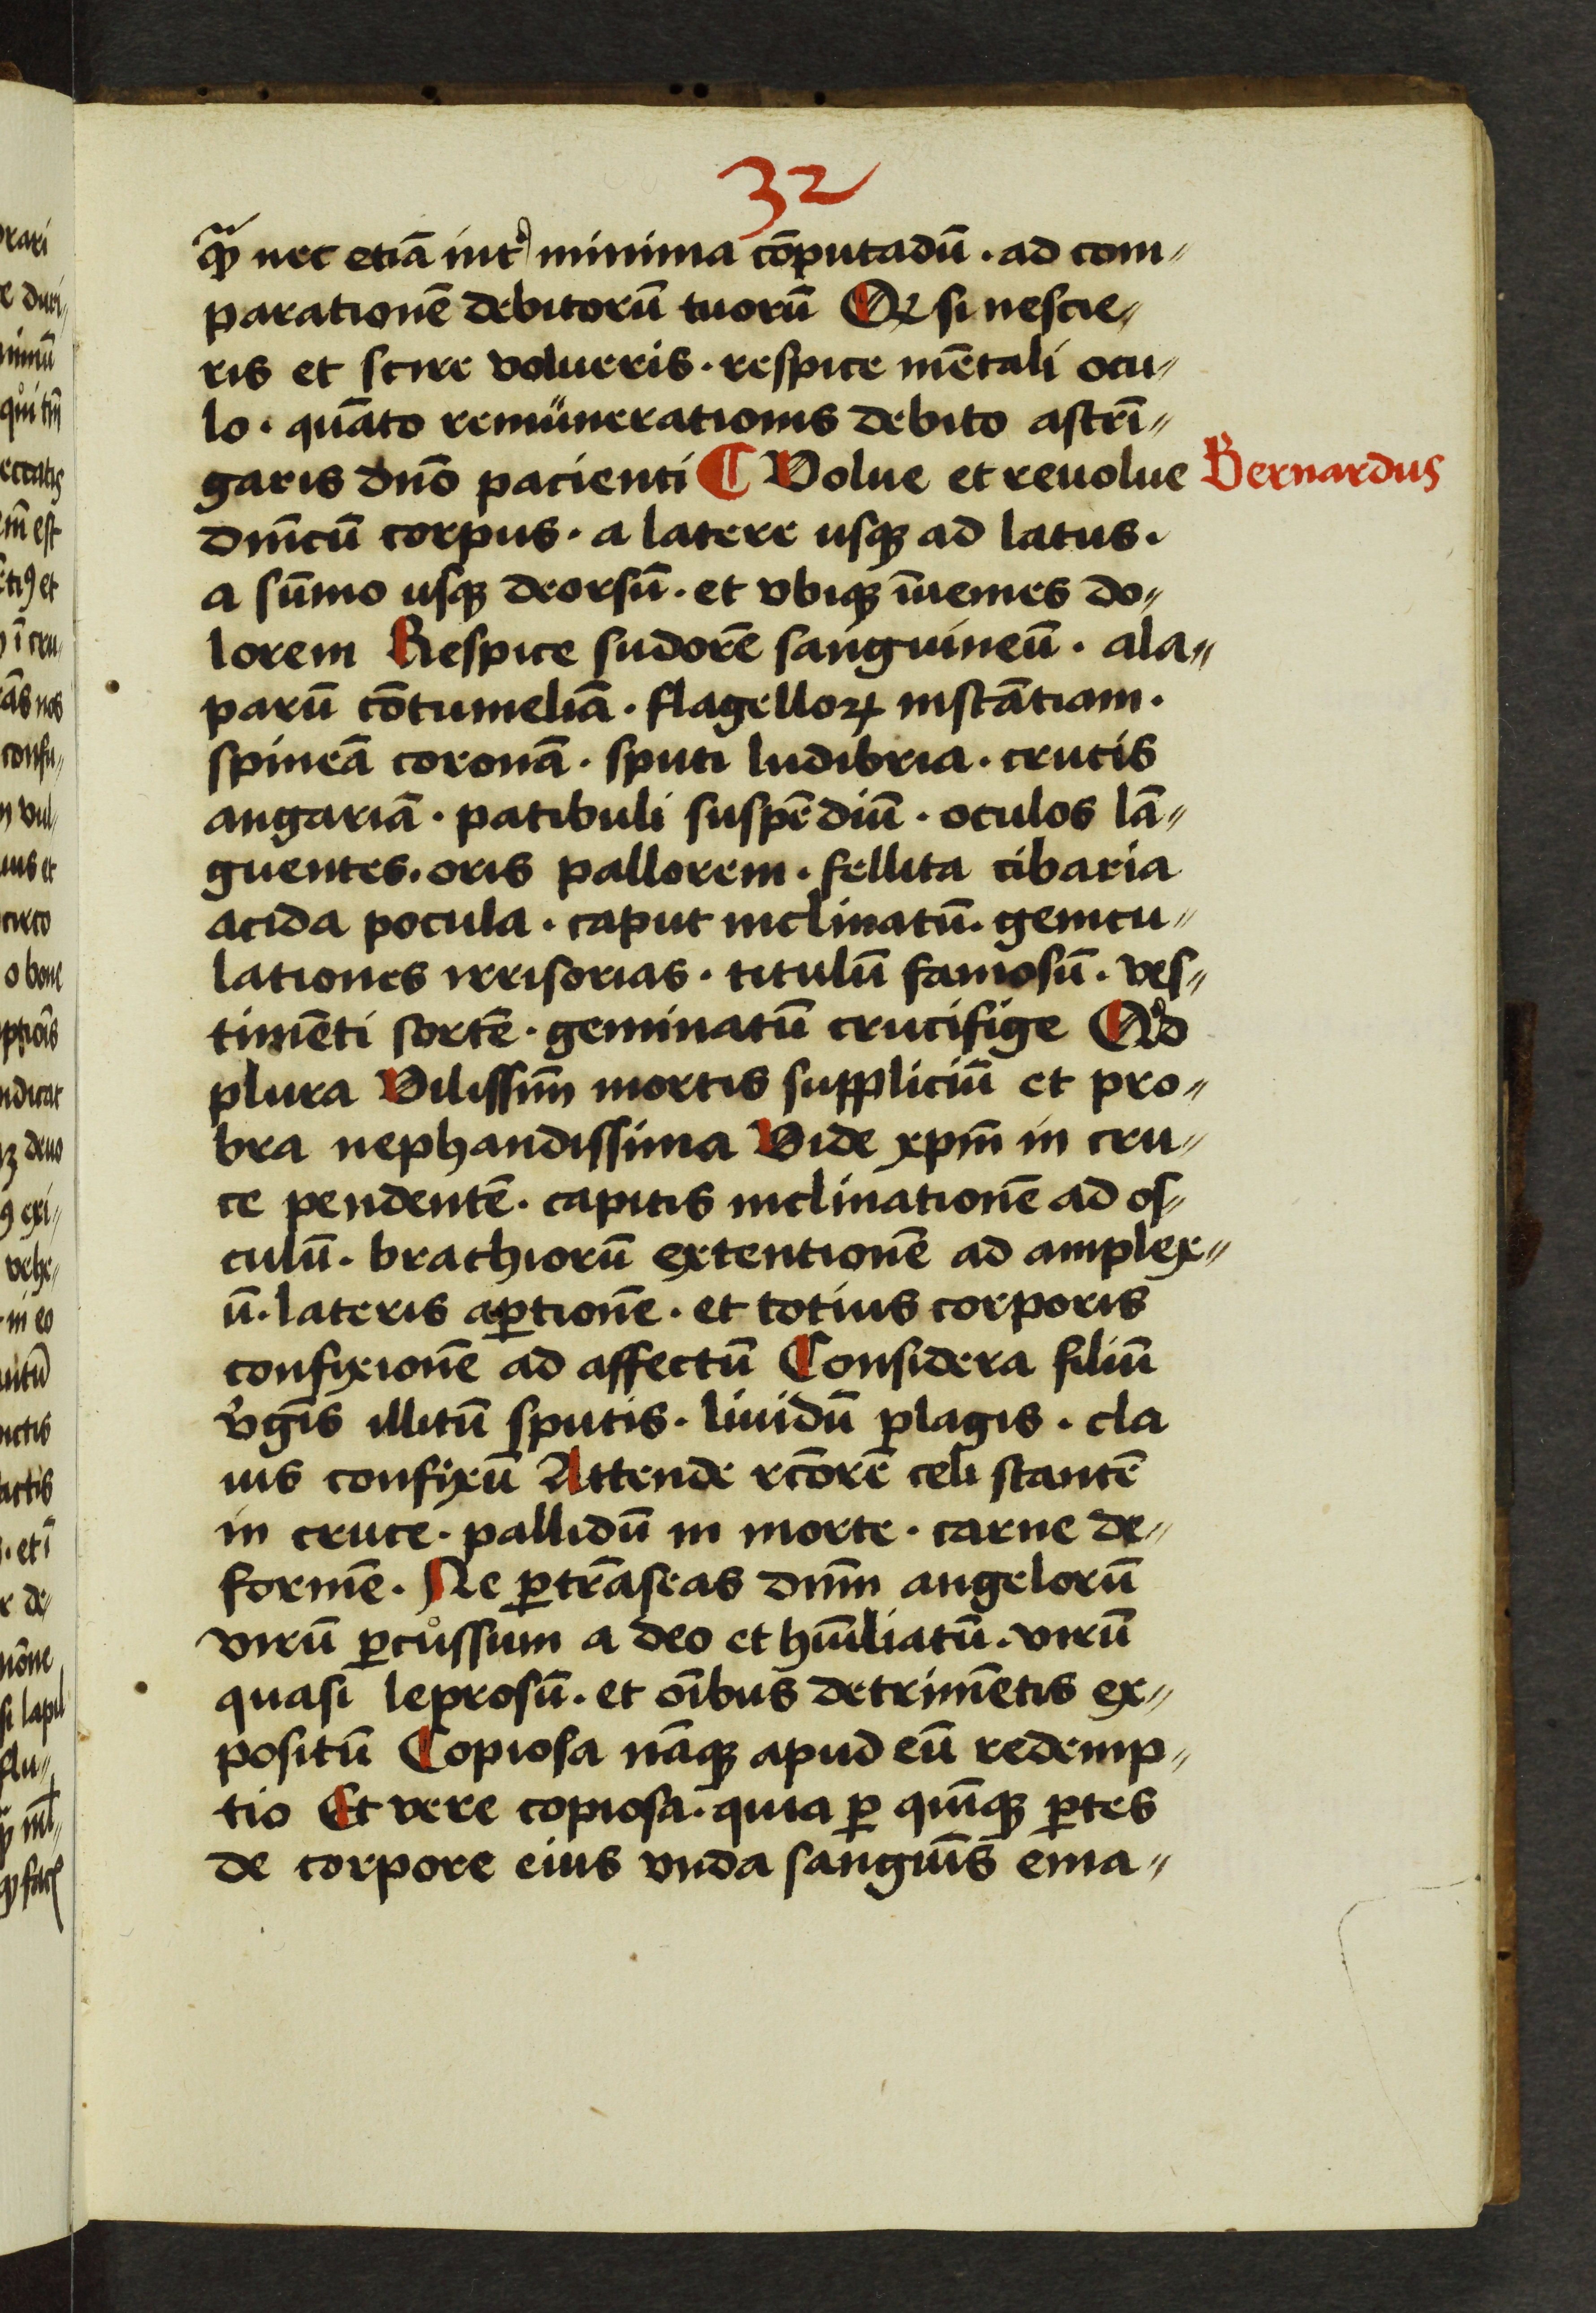 32
nec etiā int᷒ minima cōputadū · ad com〃
parationē debitorū tuorū si nescie〃
ris et scire volueris · respice mētali ocu〃
lo · quāto remunerationis debito astrī〃
garis dnō pacienti ¶ Volue et reuolue
Bernardus
dnīcū corpus · a latere usqꝫ ad latus ·
a sūmo usqꝫ deorsū · et vbiqꝫ īuenies do〃
lorem Respice sudorē sanguineū · ala〃
parū cōtumeliā · flagelloꝝ instātiam ·
spineā coronā · sputi ludibria · crucis
angariā · patibuli suspēdiū · oculos lā〃
guentes · oris pallorem · fellita cibaria
acida pocula · caput inclinatū · genicu〃
lationes irrisorias · titulū famosū · ves〃
timēti sortē · geminatū crucifige Qͥd
plura Vilissim̄ mortis suppliciū et pro〃
bra nephandissima Vide xpm̄ in cru〃
ce pendentē · capitis inclinationē ad os〃
culū · brachiorū extentionē ad amplex〃
ū · lateris aꝑtionē · et totius corporis
confixionē ad affectū Considera filiū
v̓gīs illitū sputis · liuidū plagis · cla
uis confixū Attende rc̄orē celi stantē
in cruce · pallidū in morte · carne de〃
formē · Ne ꝑtrāseas dnm̄ angelorū
virū ꝑcussum a deo et hūiliatū · virū
quasi leprosū · et oībus detrimētis ex〃
positū Copiosa nāqꝫ apud eū redemp〃
tio Et vere copiosa · quia ꝑ quīqꝫ ꝑtes
de corpore eius vnda sanguīs ema〃